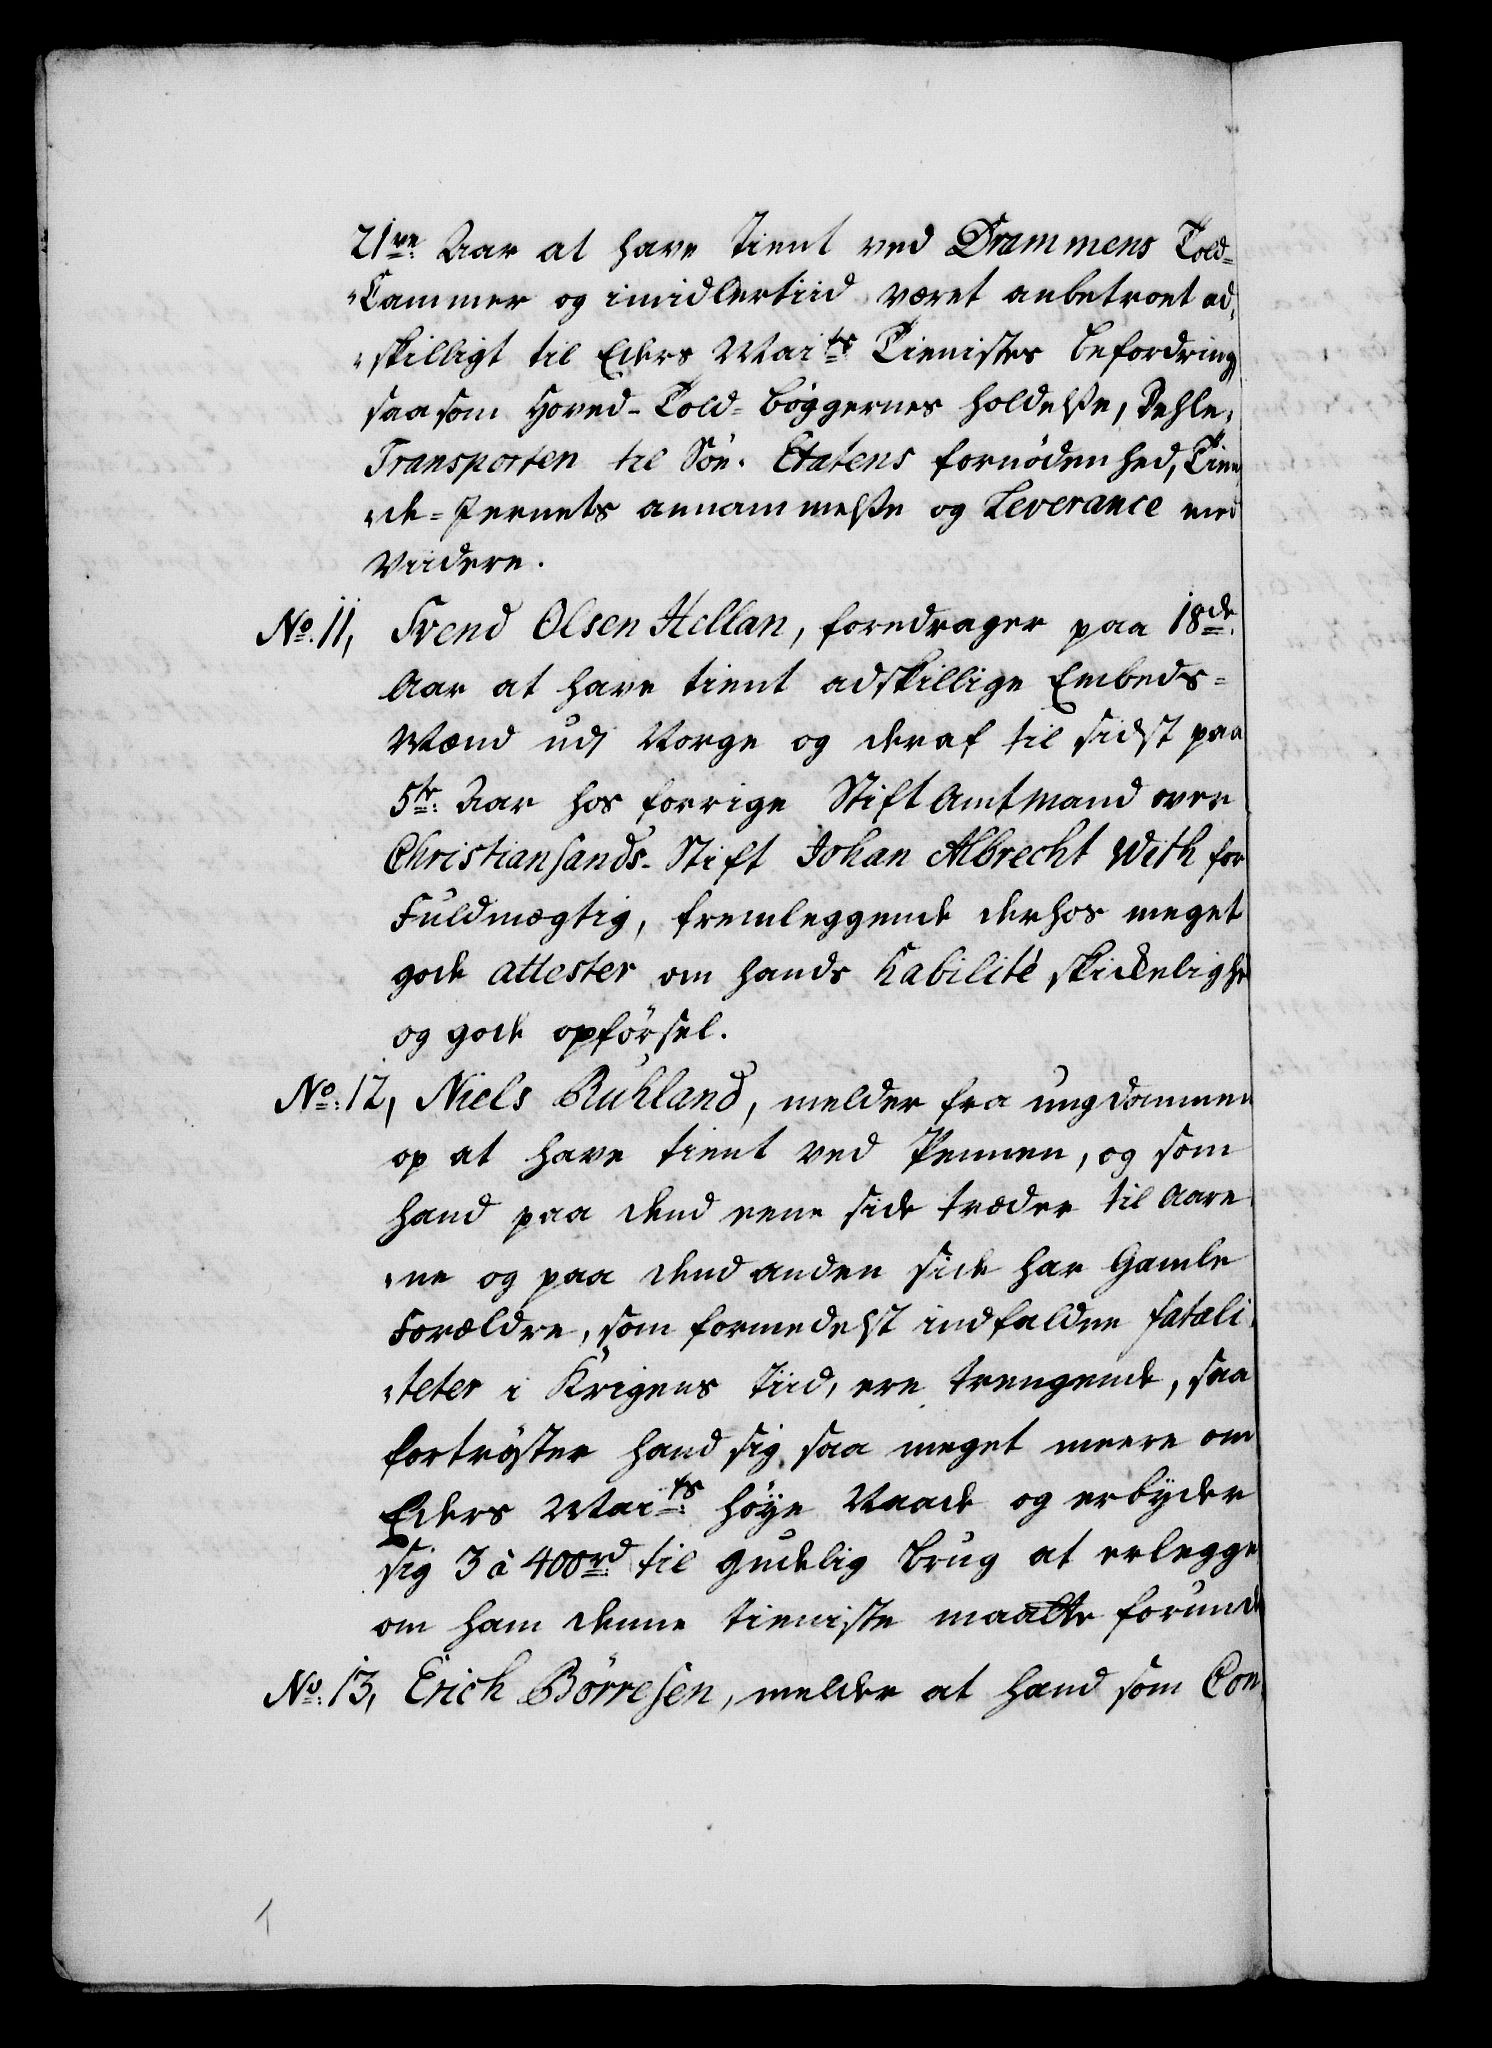 21ve: Aar at have tient ved Drammens Told-
Cammer og imidlertiid været anbetroet ad-
skilligt til Eders Maits Tienistes befordring
saasom Hoved-Told-bøggernes holdelße, Dehle-
Transporten til Söe-Etatens fornödenhed, Tien-
de-Jernets annammelße og Leverance med
Viidere.
No. 11, Svend Olsen Hellan, foredrager paa 18de
Aar at have tient adskillige Embeds-
Mænd udj Norge og deraf til sidst paa
5te: Aar hos forrige Stift Amtmand over
Christiansands-Stift Johan Albrecht With for
Fuldmægtig, fremleggende derhos meget
gode attester om hands habilité skickeligh
og gode opförsel.
No: 12, Niels Ruhland, melder fra ungdommen
op at have tient ved Pennen, og som
hand paa dend eene side træder til Aare-
ne og paa dend anden side har Gamle
Forældre, som formedelst indfaldne fatali-
teter i Krigens tiid, ere trengende, saa
fortrøster hand sig saa meget meere om
Eders Maits: høye Naade og erbyder
sig 3 à 400rd til gudelig brug at erlegge
om ham denne tieniste maatte forunde
No: 13, Erich Börresen, melder at hand som Con-